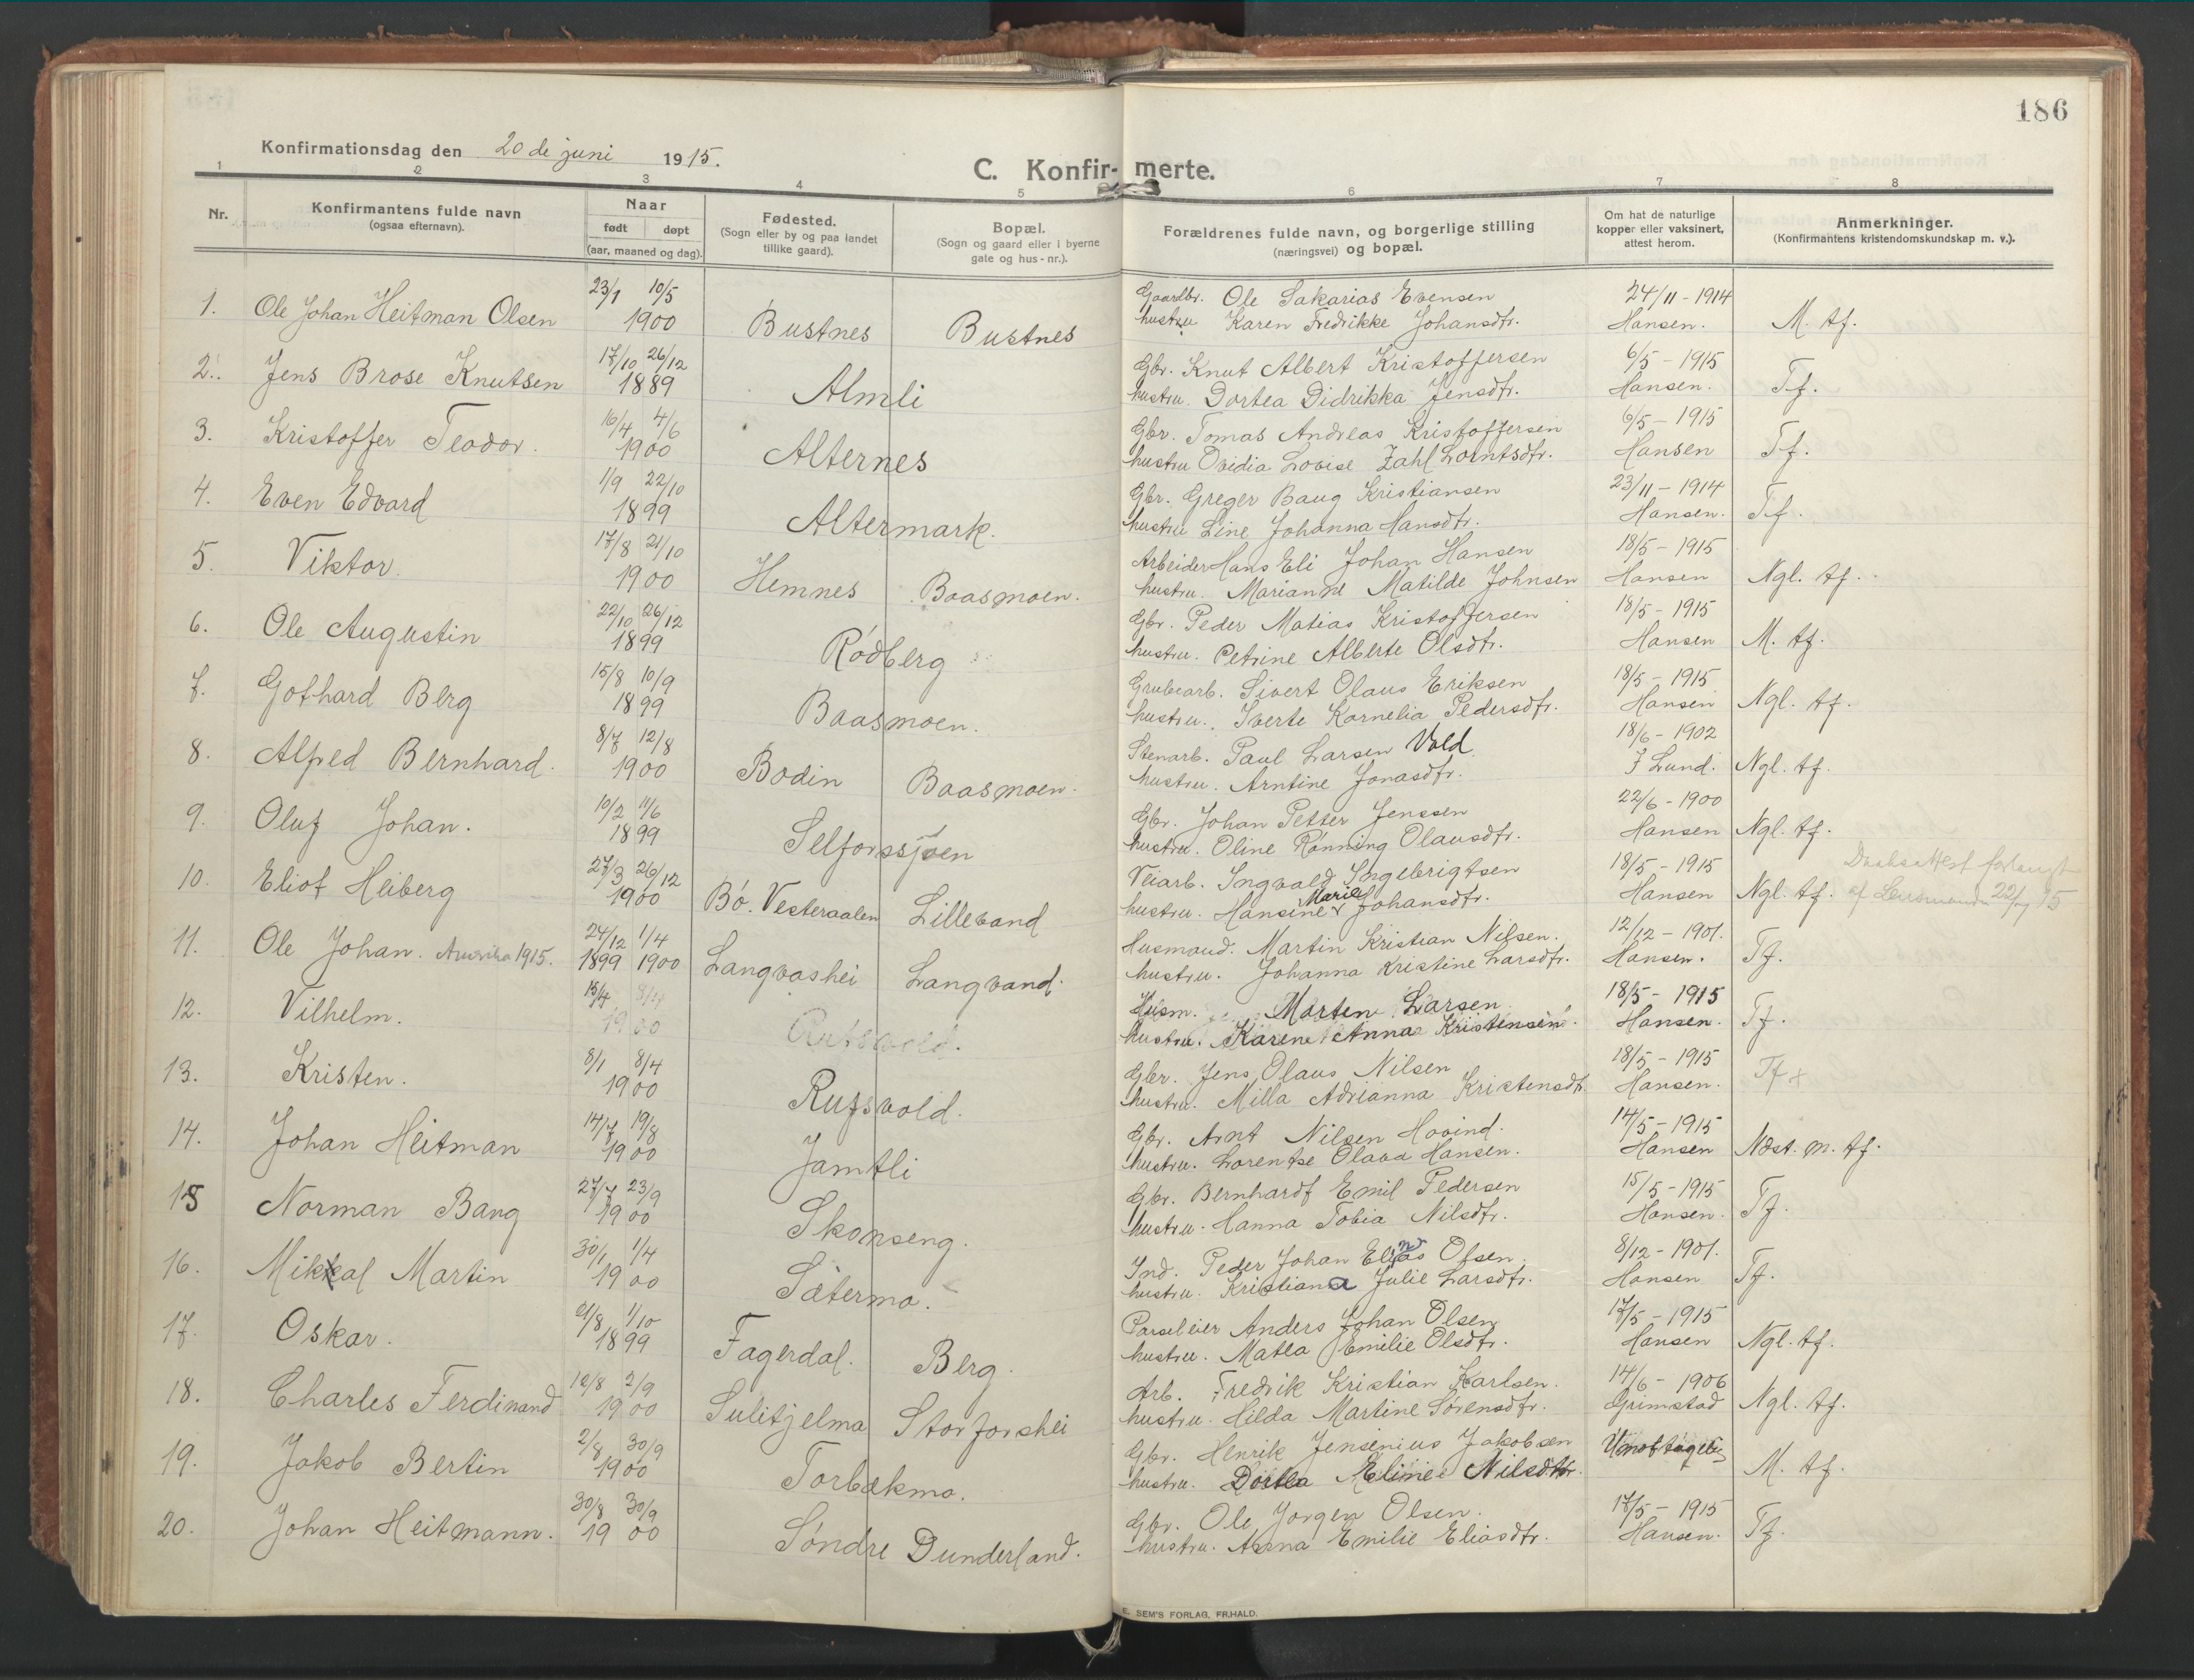 186
Konfirmationsdag den 20 de juni 1915.
C. Konfir- merte.
1 2 3 4 5 6 7 8
Nr.
Konfirmantens fulde navn
(ogsaa efternavn).
Naar
født døpt
(aar, maaned og dag).
Fødested.
(Sogn eller by og paa landet
tillike gaard).
Bopæl.
(Sogn og gaard eller i byerne
gate og hus-nr.).
Forældrenes fulde navn, og borgerlige stilling
(næringsvei) og bopæl.
Om hat de naturlige
kopper eller vaksinert,
attest herom.
Anmerkninger.
(Konfirmantens kristendomskundskap m. v.).
1. Ole Johan Heitman Olsen 23/1 10/5 1900 Bustnes Bustnes
Gaardbr. Ole Sakarias Evensen 24/11-1914
hustru Karen Fredrikke Johansdtr. Hansen. M. tf.
2. Jens Brose Knutsen 17/10 26/12 1889 Almli
Gbr. Knut Albert Kristoffersen 6/5-1915
hustru. Dortea Didrikka Jensdtr. Hansen. Tf.
3. Kristoffer Teodor. 16/4 4/6 1900 Alternes
Gbr. Tomas Andreas Kristoffersen 6/5-1915
hustru Ovidia Lovise Zahl Lorntsdtr. Hansen Tf.
4. Even Edvard 1/9 22/10 1899 Altermark.
Gbr. Greger Baug Kristiansen 23/11-1914
hustru Line Johanna Hansdtr. Hansen. Tf.
5. Viktor. 17/8 21/10 1900 Hemnes Baasmoen.
Arbeider Hans Eli Johan Hansen 18/5-1915
hustru. Marianne Matilde Johnsen Hansen Ngl. tf.
6. Ole Augustin 22/10 26/12 1899 Rødberg
Gbr. Peder Matias Kristoffersen 18/5-1915
hustru. Petrine Alberte Olsdtr. Hansen M. tf.
7. Gothard Berg 15/8 10/9 1899 Baasmoen.
Grubearb. Sivert Olaus Eriksen 18/5-1915
hustru. Iverte Kornelia Pedersdtr. Hansen Ngl. tf.
8. Alfred Bernhard. 8/7 12/8 1900 Bodin Baasmoen.
Stenarb. Paul Larsen Vold 18/6-1902
hustru. Arntine Jonasdtr. J Lund. Ngl. tf.
9. Oluf Johan. 10/2 11/6 1899 Selforssjøen
Gbr. Johan Petter Jenssen 22/6-1900
hustru. Oline Rønning Olausdtr. Hansen Ngl. tf.
10. Eliot Heiberg 27/3 26/12 1900 Bø. Vesteraalen Lillevand
Veiarb. Ingvald Ingebrigtsen 18/5-1915
hustru. Hansine Marie Johansdtr. Hansen Ngl. tf. 22/7 15
11. Ole Johan. Amerika 1915. 24/12 1/4 1899 1900 Langvashei Langvand.
Husmand. Martin Kristian Nilsen. 12/12-1901.
hustru. Johanna Kristine Larsdtr. Hansen. Tf.
12. Vilhelm. 15/4 1900 Rufsvold.
Husm. Morten Larsen 18/5-1915
hustru. Karene Anna Kristensen. Hansen. Tf.
13. Kristen. 8/1 8/4 1900 Rufsvold.
Gbr. Jens Olaus Nilsen 18/5-1915
hustru. Milla Adrianna Kristensdtr. Hansen. Tf +
14. Johan Heitman 14/7 19/8 1900 Jamtli
Gbr. Arnt Nilsen Hovind. 14/5-1915
hustru. Lorentse Olava Hansen. Hansen Næst. m. tf.
15 Norman Bang 27/7 23/9 1900 Skonseng.
Gbr. Bernhardt Emil Pedersen 15/5-1915
hustru. Hanna Tobia Nilsdtr. Hansen. Tf.
16. Mikkal Martin 30/1 1/4 1900 Sætermo.
Ind. Peder Johan Elias Olsen. 8/12-1901.
hustru. Kristiana Julie Larsdtr. Hansen Tf.
17. Oskar. 21/8 1/10 1899 Fagerdal. Berg.
Parseleier Anders Johan Olsen 17/5-1915
hustru. Matea Emilie Olsdtr. Hansen Ngl. tf.
18. Charles Ferdinand 12/8 2/9 1900 Sulitjelma Storforshei
Arb. Fredrik Kristian Karlsen. 14/6-1906
hustru. Hilda Martine Sørensdtr. Grimstad Ngl. tf.
19. Jakob Bertin 2/8 30/9 1900 Torbækmo.
Gbr. Henrik Jensenius Jakobsen Umottagelig
hustru. Dortea Eline Nilsdtr. M. tf.
20. Johan Heitmann. 30/8 30/9 1900 Søndre Dunderland.
Gbr. Ole Jorgen Olsen. 17/5-1915
hustru. Anna Emilie Eliasdtr. Hansen. Tf.
E. SEM'S FORLAG, FR.HALD.